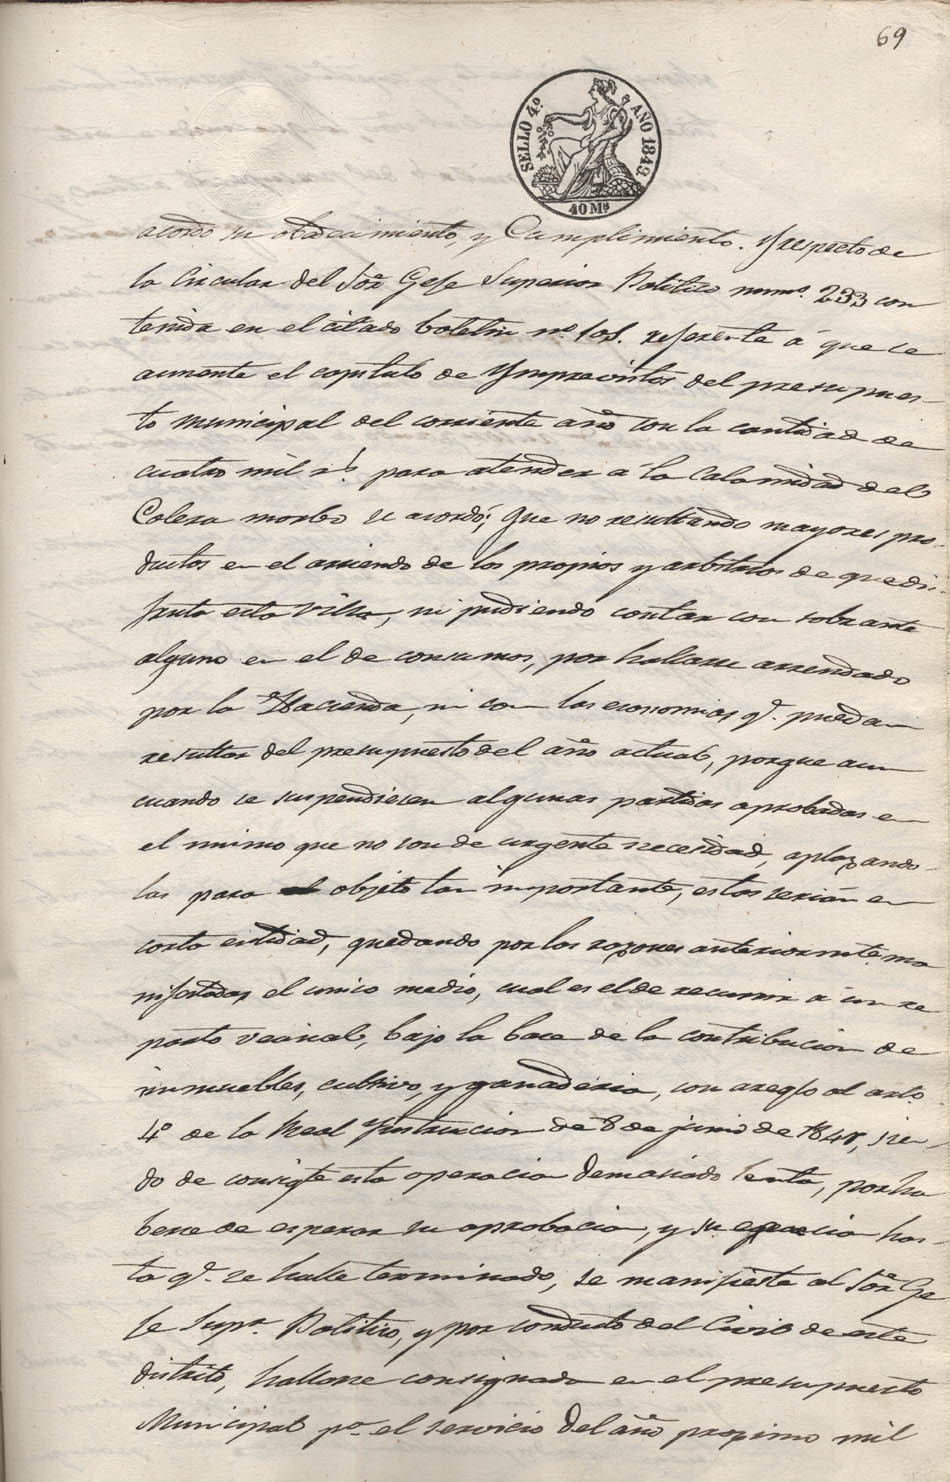 69
SELLO 4º AÑO 1849
40 Ms
acordo su obedecimiento, y Cumplimiento. Y respecto de
la Circular del Sor. Gefe Superior Politico numº. 233 con
tenida en el citado boletin nº. 101. referente á que se
aumente el capitulo de Ymprevistos del presupues-
to Municipal del corriente año con la cantidad de
cuatro mil rs. para atender á la Calamidad del
Colera morbo se acordó; Que no resultando mayores pro-
ductos en el arriendo de los propios y arbitrios de que dis-
fruta esta Villa, ni pudiendo contar con sobrante
alguno en el de consumos, por hallarse arrendado
por la Hacienda, ni con las economias q. puedan
resultar del presupuesto del año actual, porque aun
cuando se suspendiesen algunas partidas aprobadas en
el mismo que no son de urgente necesidad, aplazando-
las para objeto tan importante, estos serian en
corta entidad, quedando por las razones anteriormte. ma
nifestadas, el unico medio, cual es el de recurrir á un re
parto vecinal, bajo la base de la contribucion de
inmuebles, cultivo, y ganaderia, con areglo al arto.
4º de la Real Ynstruccion de 8 de junio de 184, sien-
do de consigte. esta operacion demasiado lenta, por ha
berse de esperar su aprobacion, y su has-
ta q. se halle terminado, se manifieste al Sor. Ge
fe Supr. Politico, y por conducto del Civil de este
distrito, hallarse consignada en el presupuesto
Municipal pa. el servicio del año proximo mil